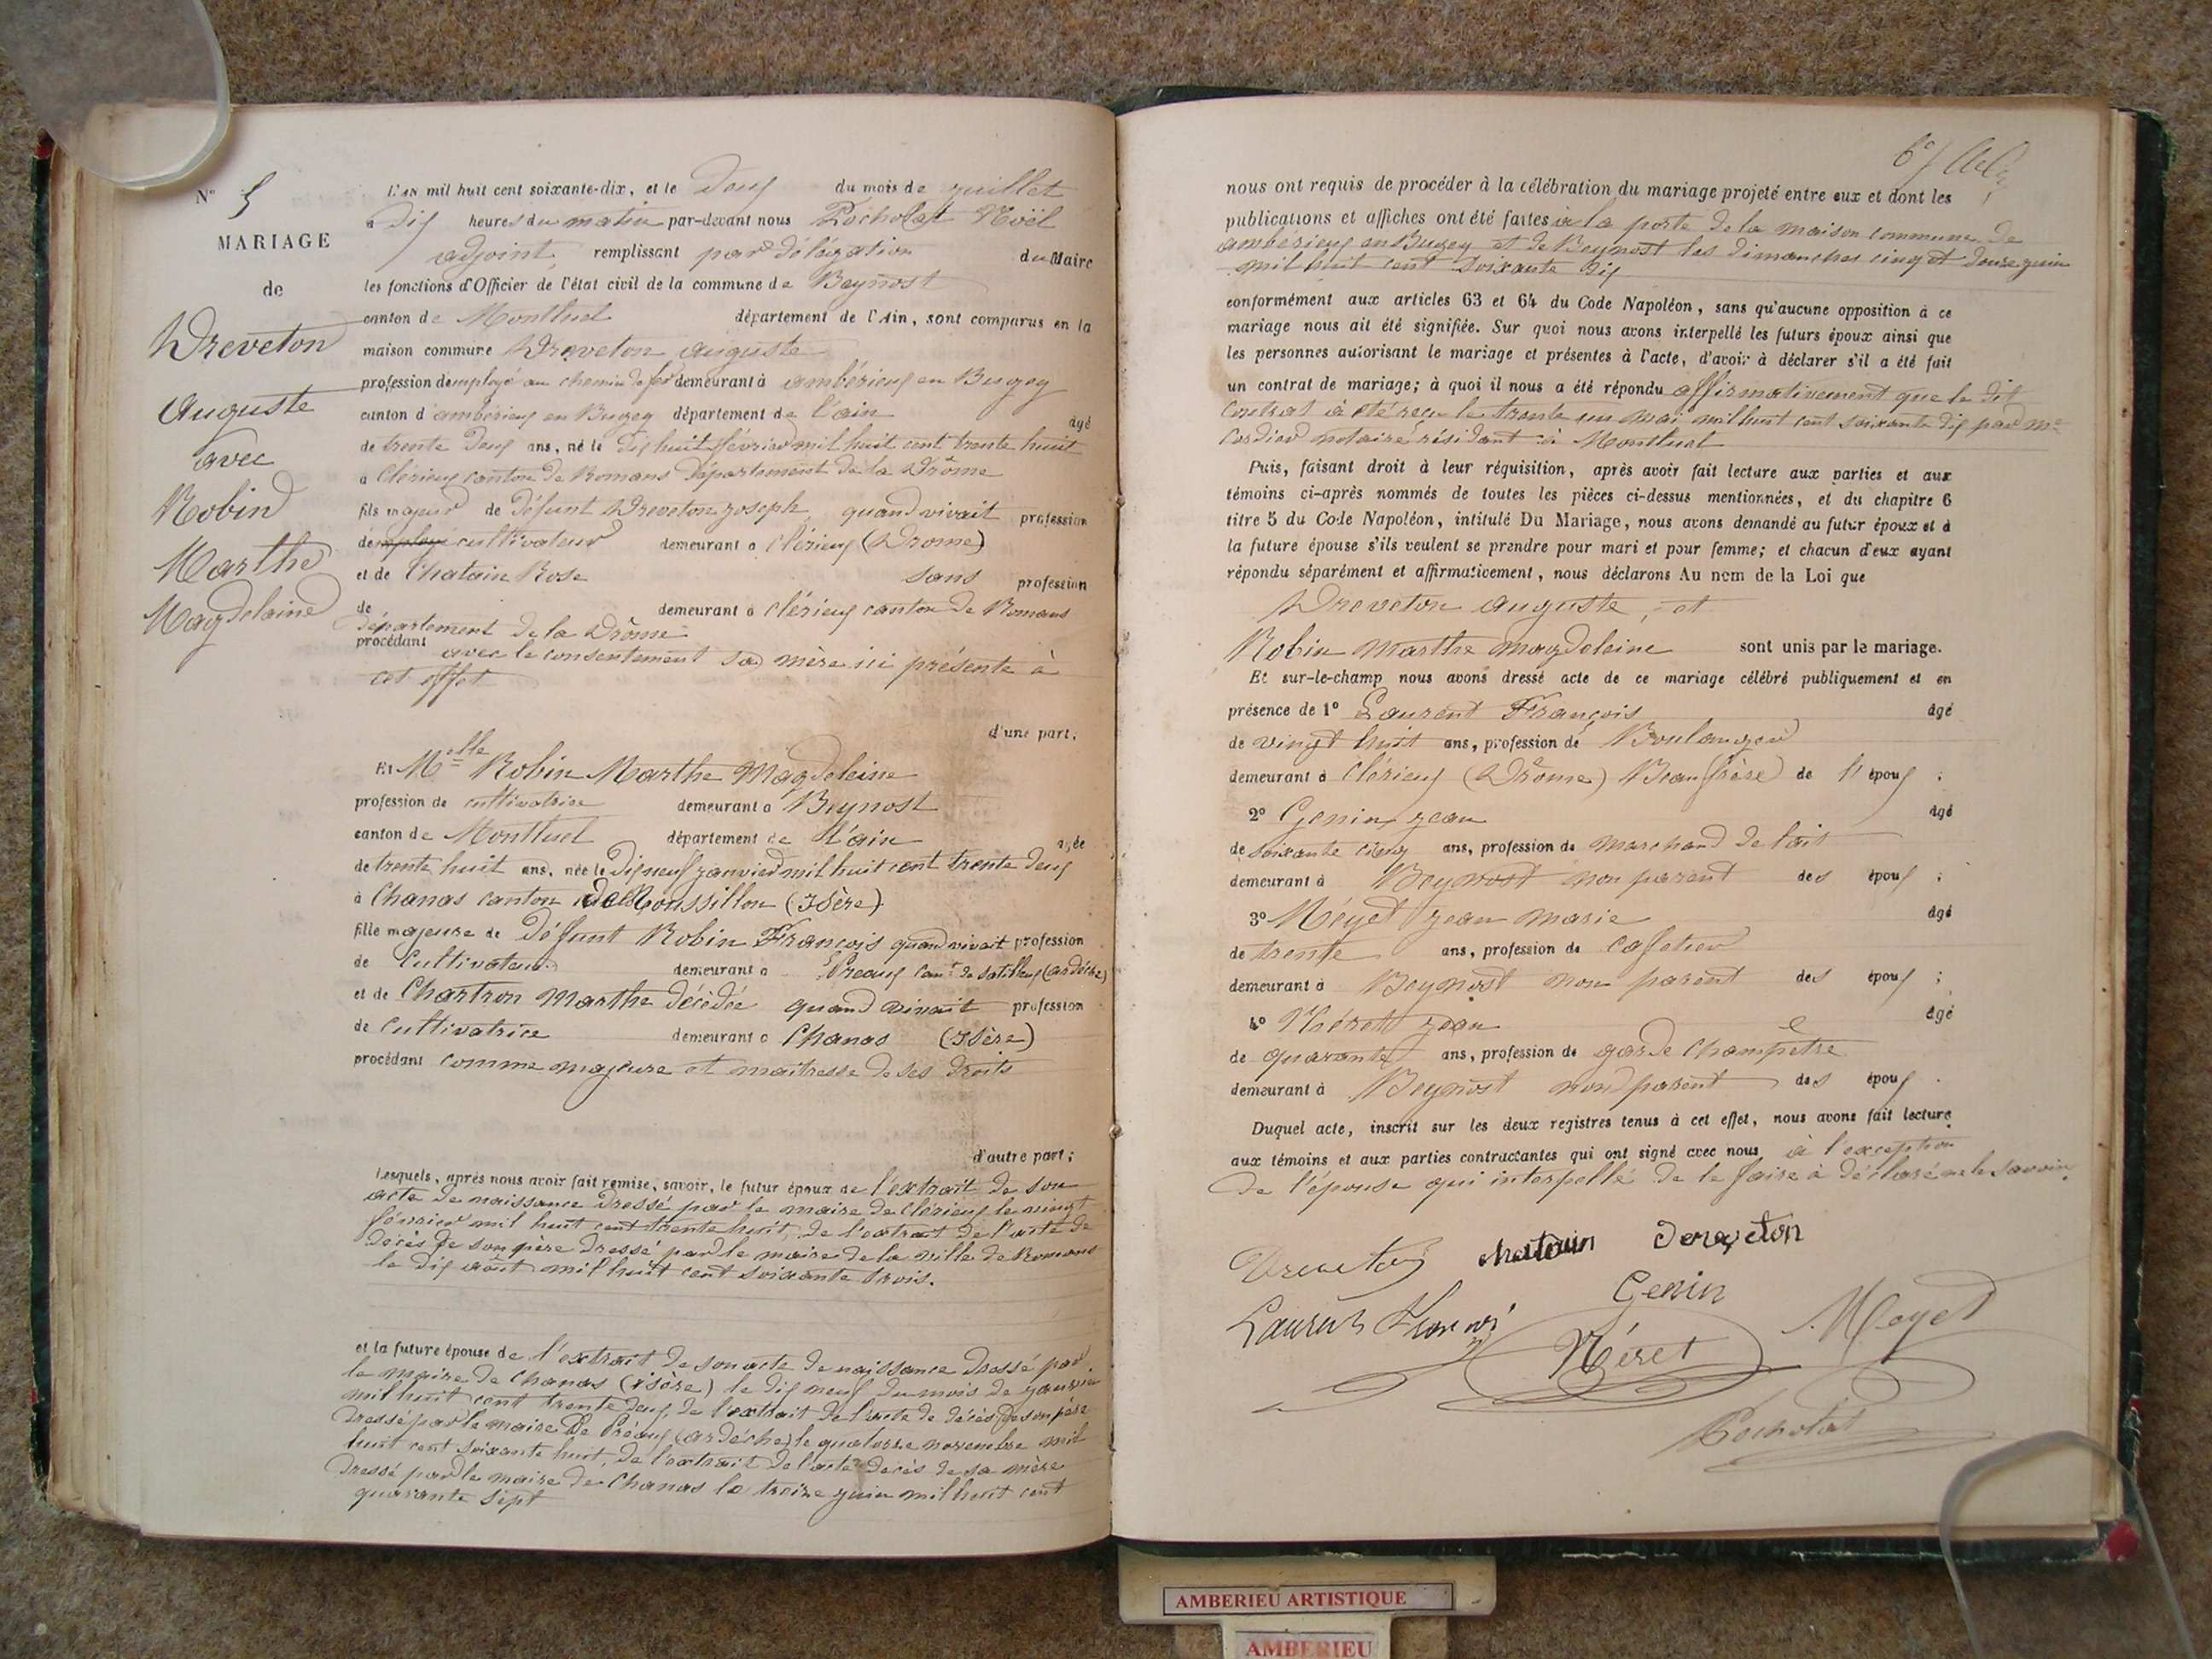 N° 5
MARIAGE
de
Dreveton
Auguste
avec
Robin
Marthe
Magdeleine
L'AN mil huit cent soixante-dix, et le Deux du mois de juillet
à Dix heures du matin par-devant nous Pocholat Noël
adjoint remplissant par délégation du Maire
les fonctions d'Officier de l'état civil de la commune de Beynost
canton de Montluel département de l'Ain, sont comparus en la
maison commune Dreveton Auguste
profession d'employé au chemin de fer demeurant à ambérieux en Bugey
canton d'ambérieux en Bugey département de l'ain âgé
de trente Deux ans, né le Dix huit février mil huit cent trente huit
à Clérieux canton de Romans Département de la Drôme
fils majeur de Défunt Dreveton joseph quand vivait profession
de cultivateur demeurant à Clérieux (Drome)
et de Chatain Rose sans profession
de demeurant à Clérieux canton de Romans
Département de la Drôme
procédant avec le consentement sa mère ici présente à
cet effet
d'une part;
Et Melle Robin Marthe Magdeleine
profession de cultivatrice demeurant à Beynost
canton de Montluel département de l'ain âgée
de trente huit ans, née le Dix neuf janvier mil huit cent trente Deux
à Chanas canton de Roussillon (Isère)
fille majeure de Défunt Robin François quand vivait profession
de Cultivateur demeurant à Préaux cant. de Satillieux (ardèche)
et de Chartron Marthe Décédée quand vivait profession
de Cultivatrice demeurant à Chanas (Isère)
procédant comme majeure et maitresse de ses Droits
d'autre part;
Lesquels, après nous avoir fait remise, savoir, le futur époux de l'extrait de son
acte de naissance Dressé par le maire de Clérieux le vingt
février mil huit cent trente huit, de l'extrait de l'acte de
Décès de son père Dressé par le maire de la ville de Romans
le Dix août mil huit cent soixante trois.
et la future épouse de l'extrait de son acte de naissance Dressé par
le maire de Chanas (isère) le Dix neuf du mois de janvier
mil huit cent trente Deux, de l'extrait de l'acte de décès de son père
Dressé par le maire De Préaux (ardèche) le quatorze novembre mil
huit cent soixante huit, de l'extrait de l'acte décès de sa mère
Dressé par le maire de Chanas le treize juin mil huit cent
quarante sept
nous ont requis de procéder à la célébration du mariage projeté entre eux et dont les
publications et affiches ont été faites à la porte de la maison commune de
ambérieux en Bugey et de Beynost les dimanches cinq et douze juin
mil huit cent soixante Dix
conformément aux articles 63 et 64 du Code Napoléon, sans qu'aucune opposition à ce
mariage nous ait été signifiée. Sur quoi nous avons interpellé les futurs époux ainsi que
les personnes autorisant le mariage et présentes à l'acte, d'avoir à déclarer s'il a été fait
un contrat de mariage; à quoi il nous a été répondu affirmativement que le dit
Contrat à été reçu le trente un mai mil huit cent soixante dix par Me
Cordier notaire résidant à Montluel
Puis, faisant droit à leur réquisition, après avoir fait lecture aux parties et aux
témoins ci-après nommés de toutes les pièces ci-dessus mentionnées, et du chapitre 6
titre 5 du Code Napoléon, intitulé Du Mariage, nous avons demandé au futur époux et à
la future épouse s'ils veulent se prendre pour mari et pour femme; et chacun d'eux ayant
répondu séparément et affirmativement, nous déclarons Au nom de la Loi que
Dreveton Auguste, et
Robin Marthe Magdeleine sont unis par le mariage.
Et sur-le-champ nous avons dressé acte de ce mariage célébré publiquement et en
présence de 1° Laurent François âgé
de vingt huit ans, profession de Boulanger
demeurant à Clérieux (Drôme) Beaufrère de l'époux ;
2° Genin jean âgé
de soixante cinq ans, profession de marchand de lait
demeurant à Beynost non parent des époux ;
3° Méyet jean marie âgé
de trente ans, profession de cafetier
demeurant à Beynost non parent des époux ;
4° Néret jean âgé
de quarante ans, profession de garde Champetre
demeurant à Beynost non parent des époux .
Duquel acte, inscrit sur les deux registres tenus à cet effet, nous avons fait lecture
aux témoins et aux parties contractantes qui ont signé avec nous à l'exception
De l'épouse qui interpellé de le faire à déclaré ne le savoir.
Dreveton chatain Dereveton
Genin
Laurent
Meyet
Néret
Pocholat
AMBERIEU ARTISTIQUE
AMBERIEU